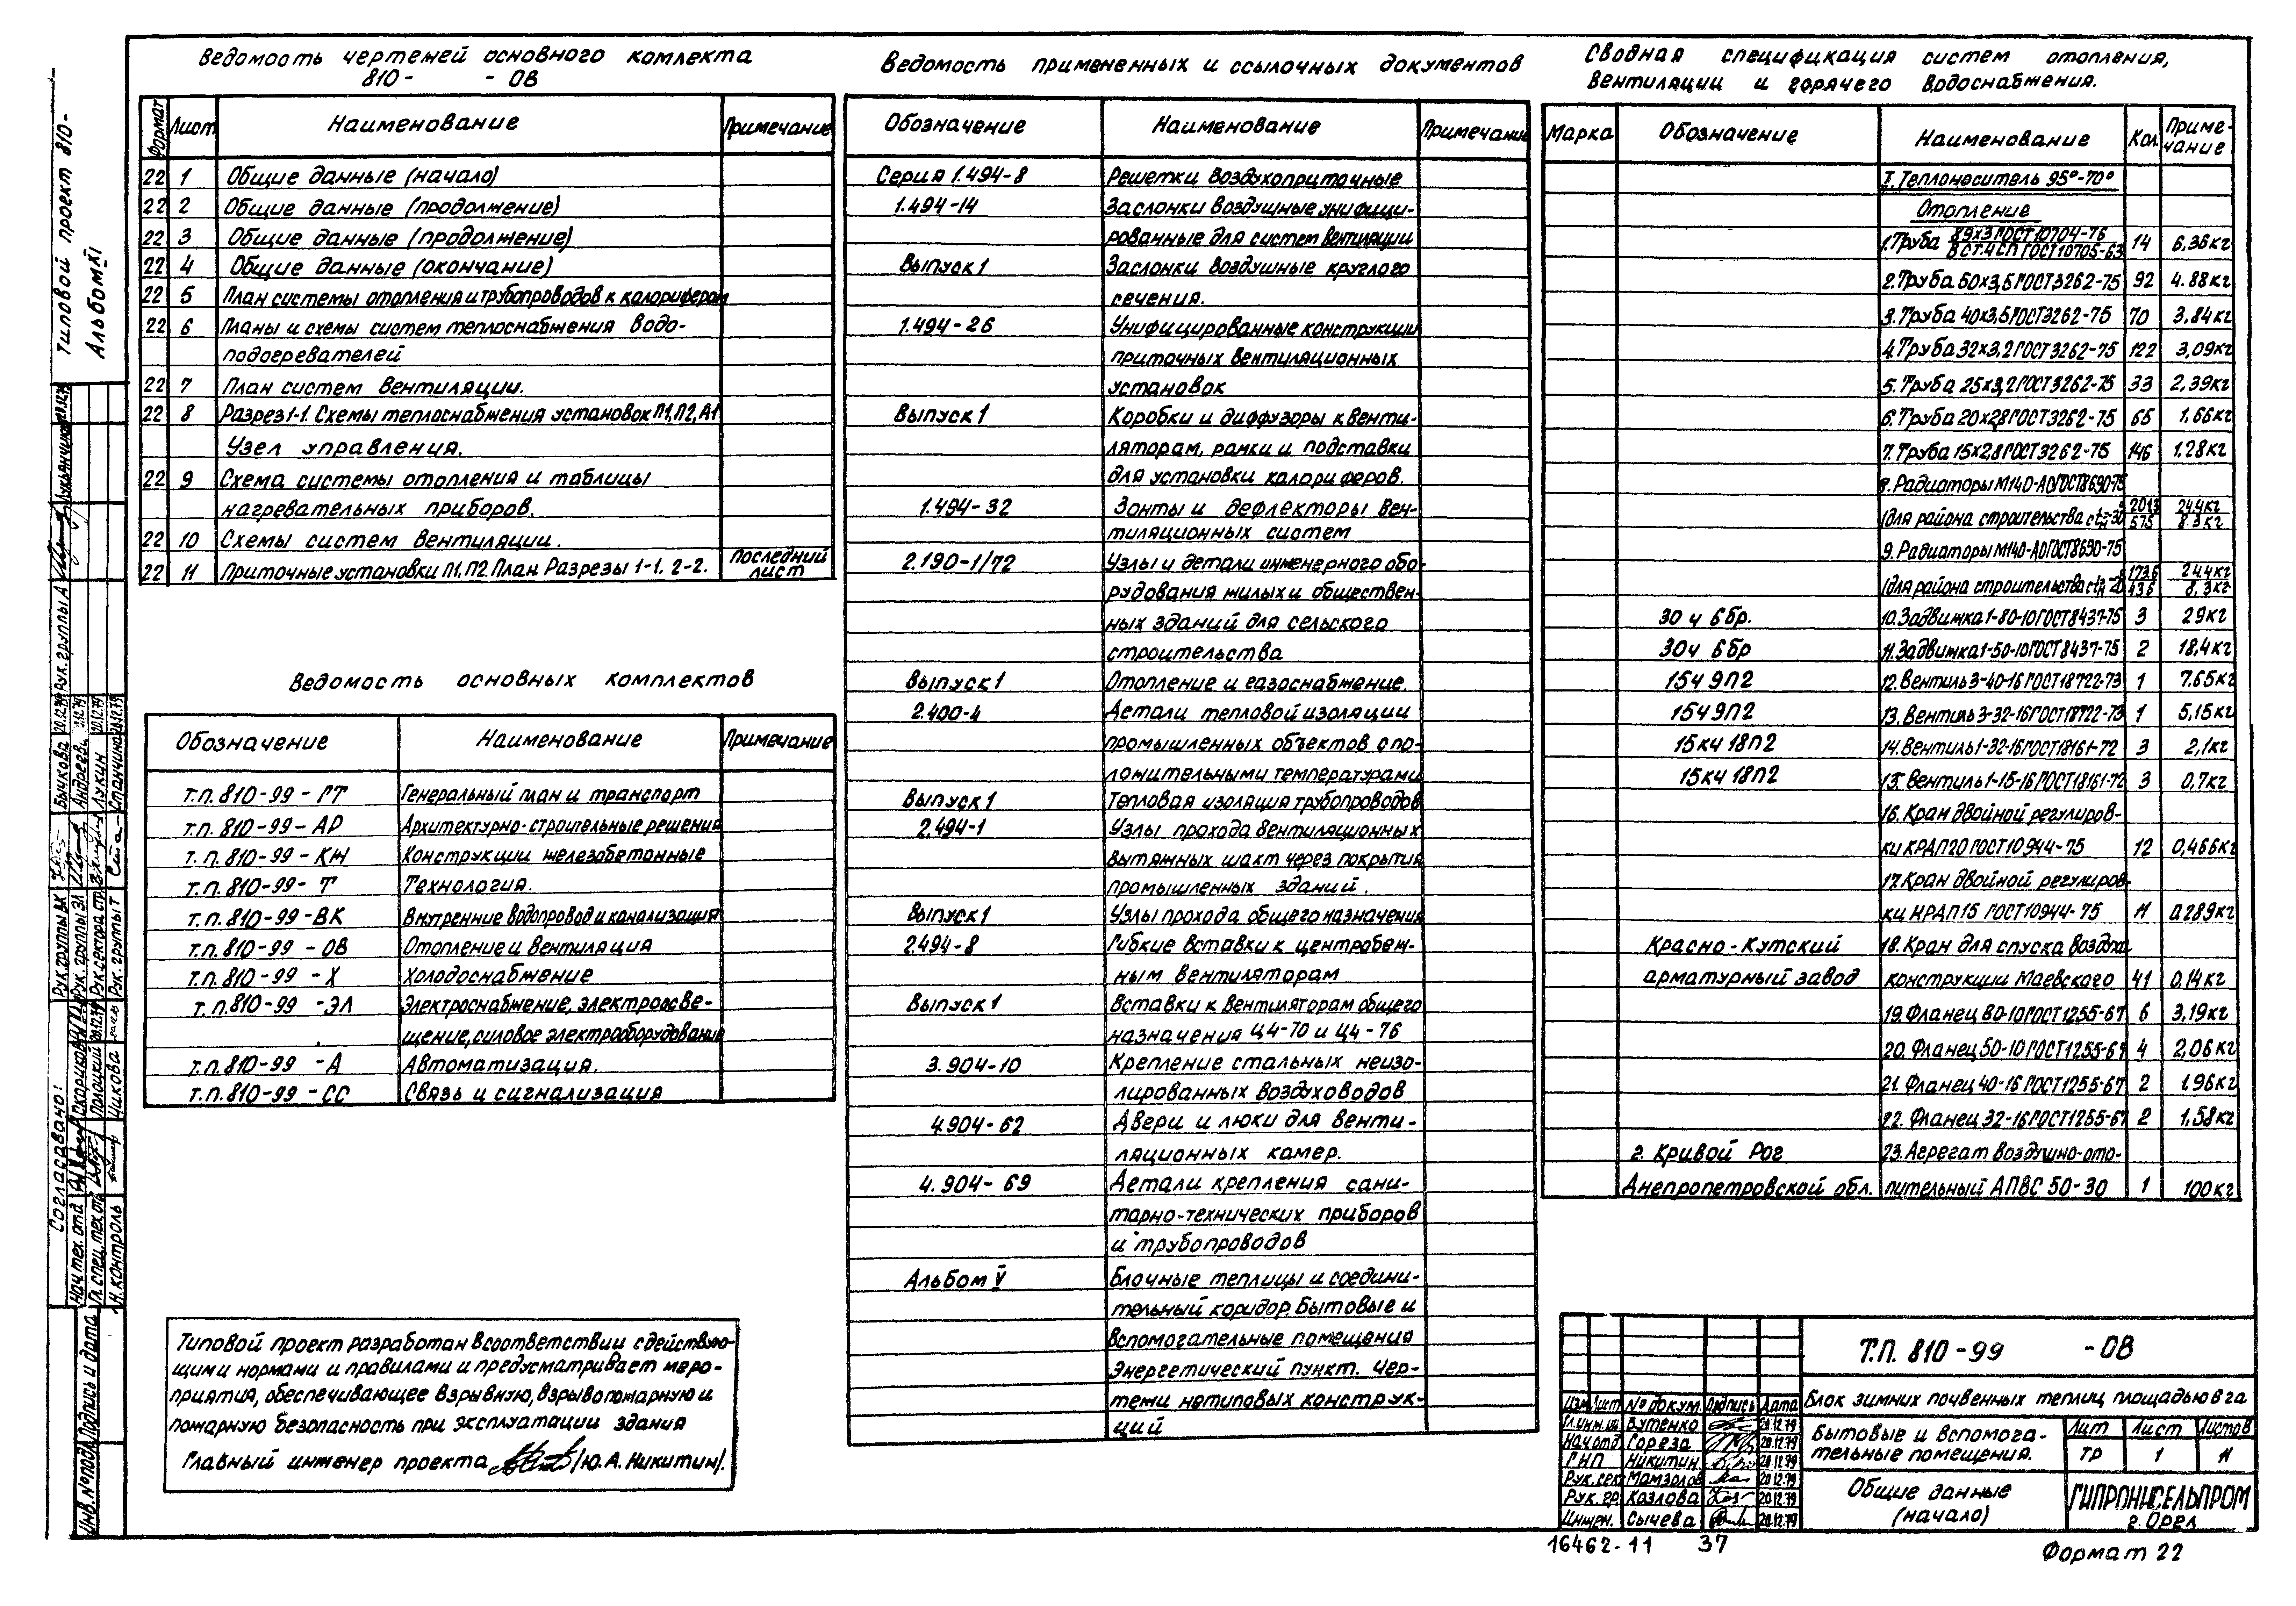 Типовой проект 810-
Альбом XI
Ведомость чертежей основного комплекта
810- -ОВ
Формат Лист Наименование Примечание
22 1 Общие данные (начало)
22 2 Общие данные (продолжение)
22 3 Общие данные (продолжение)
22 4 Общие данные (окончание)
22 5 План системы отопления и трубопроводов к калориферам
22 6 Планы и схемы систем теплоснабжения водо-
подогревателей
22 7 План систем вентиляции.
22 8 Разрез 1-1. Схемы теплоснабжения установок П1, П2, А1
Узел управления.
22 9 Схема системы отопления и таблицы
нагревательных приборов.
22 10 Схемы систем вентиляции.
22 11 Приточные установки П1, П2. План. Разрезы 1-1, 2-2. Последний
лист
Ведомость основных комплектов
Обозначение Наименование Примечание
Т.П. 810-99-ГТ Генеральный план и транспорт
Т.П. 810-99-АР Архитектурно-строительные решения
Т.П. 810-99-КЖ Конструкции железобетонные
Т.П. 810-99-Т Технология.
Т.П. 810-99-ВК Внутренние водопровод и канализация
Т.П. 810-99-ОВ Отопление и вентиляция
Т.П. 810-99-Х Холодоснабжение
Т.П. 810-99-ЭЛ Электроснабжение, электроосве-
щение, силовое электрооборудование
Т.П. 810-99-А Автоматизация.
Т.П. 810-99-СС Связь и сигнализация
Типовой проект разработан в соответствии с действую-
щими нормами и правилами и предусматривает меро-
приятия, обеспечивающее взрывную, взрывопожарную и
пожарную безопасность при эксплуатации здания
Главный инженер проекта /Ю.А. Никитин/.
Ведомость примененных и ссылочных документов
Обозначение Наименование Примечание
Серия 1.494-8 Решетки воздухоприточные
1.494-14 Заслонки воздушные унифици-
рованные для систем вентиляции
Выпуск 1 Заслонки воздушные круглого
сечения.
1.494-26 Унифицированные конструкции
приточных вентиляционных
установок
Выпуск 1 Коробки и диффузоры к венти-
ляторам, рамки и подставки
для установки калориферов.
1.494-32 Зонты и дефлекторы вен-
тиляционных систем
2.190-1/72 Узлы и детали инженерного обо-
рудования жилых и обществен-
ных зданий для сельского
строительства
Выпуск 1 Отопление и газоснабжение.
2.400-4 Детали тепловой изоляции
промышленных объектов с по-
ложительными температурами
Выпуск 1 Тепловая изоляция трубопроводов
2.494-1 Узлы прохода вентиляционных
вытяжных шахт через покрытия
промышленных зданий.
Выпуск 1 Узлы прохода общего назначения
2.494-8 Гибкие вставки к центробеж-
ным вентиляторам
Выпуск 1 Вставки к вентиляторам общего
назначения Ц4-70 и Ц4-76
3.904-10 Крепление стальных неизо-
лированных воздуховодов
4.904-62 Двери и люки для венти-
ляционных камер.
4.904-69 Детали крепления сани-
тарно-технических приборов
и трубопроводов
Альбом V Блочные теплицы и соедини-
тельный коридор. Бытовые и
вспомогательные помещения
Энергетический пункт. Чер-
тежи нетиповых конструк-
ций
Сводная спецификация систем отопления,
вентиляции и горячего водоснабжения.
Марка Обозначение Наименование Кол. Приме-
чание
I. Теплоноситель 95°-70°
Отопление
1. Труба 89х3 ГОСТ 10704-76 / В Ст.4 СП ГОСТ 10705-63 14 6,36кг
2. Труба 50х3,5 ГОСТ 3262-75 92 4.88кг
3. Труба 40х3,5 ГОСТ 3262-75 70 3,84кг
4. Труба 32х3,2 ГОСТ 3262-75 122 3,09кг
5. Труба 25х3,2 ГОСТ 3262-75 33 2,39кг
6. Труба 20х2,8 ГОСТ 3262-75 65 1,66кг
7. Труба 15х2,8 ГОСТ 3262-75 146 1.28кг
8. Радиаторы М140-АО ГОСТ 8690-75
(для района строительства с tн-30 575 24.4кг / 8.3кг
9. Радиаторы М140-АО ГОСТ 8690-75
(для района строительства с tн-20 1736 / 436 24.4кг / 8,3кг
30ч 6бр. 10. Задвижка 1-80-10 ГОСТ 8437-75 3 29кг
30ч 6бр 11. Задвижка 1-50-10 ГОСТ 8437-75 2 18,4кг
15ч 9П2 12. Вентиль 3-40-16 ГОСТ 18722-73 1 7.65кг
15ч 9П2 13. Вентиль 3-32-16 ГОСТ 18722-73 1 5,15кг
15кч 18П2 14. Вентиль 1-32-16 ГОСТ 18161-72 3 2,1кг
15кч 18П2 15. Вентиль 1-15-16 ГОСТ 18161-72 3 0,7кг
16. Кран двойной регулиров-
ки КРДП20 ГОСТ 10944-75 12 0,466кг
17. Кран двойной регулиров-
ки КРДП15 ГОСТ 10944-75 11 0.289кг
Красно-Кутский 18. Кран для спуска воздуха
арматурный завод конструкции Маевского 41 0.14кг
19. Фланец 80-10 ГОСТ 1255-67 6 3,19кг
20. Фланец 50-10 ГОСТ 1255-67 4 2,06кг
21. Фланец 40-16 ГОСТ 1255-67 2 1.96кг
22. Фланец 32-16 ГОСТ 1255-67 2 1,58кг
г. Кривой Рог 23. Агрегат воздушно-ото-
Днепропетровской обл. пительный АПВС 50-30 1 100кг
Т.П. 810-99 -ОВ
Блок зимних почвенных теплиц площадью 6 га
Изм Лист № докум. Подпись Дата
Гл.инж.ин Бутенко 20.12.79
Нач отд Гореза 20.12.79
ГИП Никитин 20.12.79
Рук.сек Мамзолов 20.12.79
Рук. гр. Козлова 20.12.79
Инжен. Сычева 20.12.79
Бытовые и вспомога-
тельные помещения.
Лит Лист Листов
ТР 1 11
Общие данные
(начало)
ГИПРОНИСЕЛЬПРОМ
г. Орел
16462-11 37
Формат 22
Согласовано:
Нач. тех. отд Скориков
Гл. спец. тех. отд Полоцкий 20.12.79
Н. контроль Чикова
Рук. группы ВК Бычкова 20.12.79
Рук. группы ЭЛ Андреев 21.12.79
Рук. сектора стр. Лукин 20.12.79
Рук. группы Т Спанчина 20.12.79
Рук. группы А Лукьянчиков
Инв. № подл. Подпись и дата